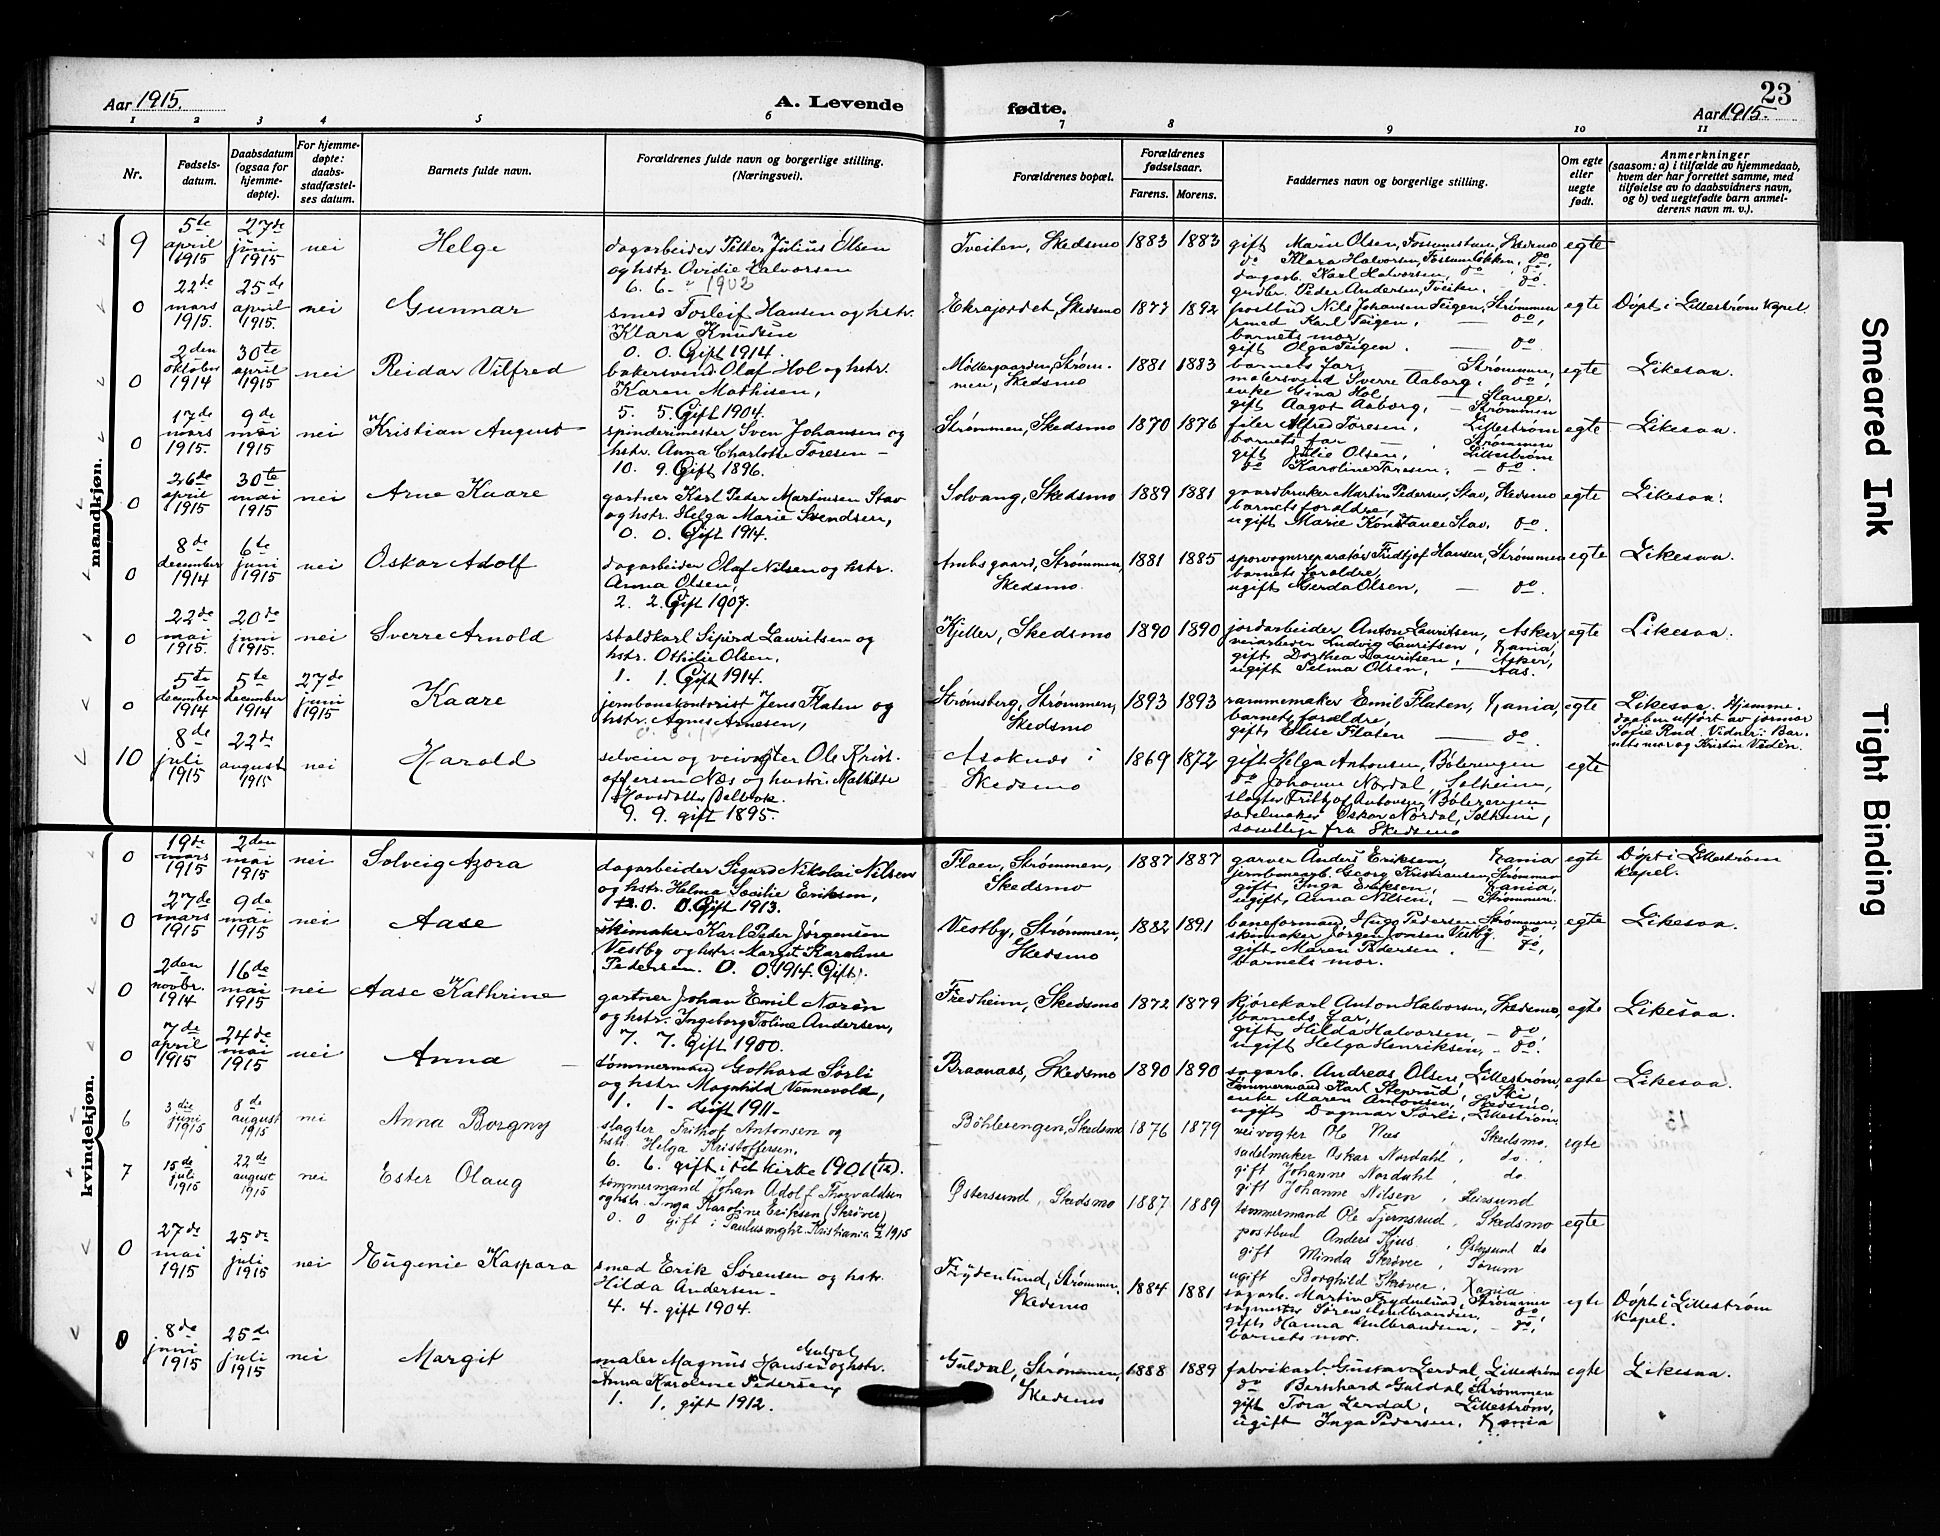 Aar 1915.
A. Levende fødte.
23
Aar 1915.
1 2 3 4 5 6 7 8 9 10 11
Nr.
Fødsels-
datum.
Daabsdatum
(ogsaa for
hjemme-
døpte).
For hjemme-
døpte:
daabs-
stadfæstel-
ses datum.
Barnets fulde navn.
Forældrenes fulde navn og borgerlige stilling.
(Næringsvei).
Forældrenes bopæl.
Forældrenes
fødselsaar.
Farens. Morens.
Faddernes navn og borgerlige stilling.
Om egte
eller
uegte
født.
Anmerkninger
(saasom: a) i tilfælde av hjemmedaab,
hvem der har forrettet samme, med
tilføielse av to daabsvidners navn,
og b) ved uegtefødte barn anmel-
derens navn m. v.).
mandkjøn.
9
5te
april
1915
27de
juni
1915
nei
Helge
dagarbeider Petter Julius Olsen
og hstr. Ovidie Halvorsen
6. 6. 1902
Tveiten, Skedsmo
1883 1883
gift Marie Olsen, Fossumstuen, Skedsmo
do Klara Halvorsen, Fossumløkken, do.
dagarb. Karl Halvorsen, do do.
gudbr. Peder Andersen, Tveiten. do.
egte
0
22de
mars
1915.
25de
april
1915.
nei
Gunnar
smed Torleif Hansen og hstr.
Klara Knudsen
0. 0. Gift 1914.
Ekrajordet, Skedsmo
1877 1892
postbud Nils Johansen Teigen, Strømmen
smed Karl Teigen, — do,
barnets mor,
gift Olga Teigen. — do.
egte
Døpt i Lillestrøm kapel.
0
2den
oktober
1914
30te
april
1915
nei
Reidar Vilfred
bakersvend Olaf Hol og hstr.
Karen Mathisen,
5. 5. Gift 1904.
Møllergaarden, Strøm-
men, Skedsmo
1881 1883
barnets far, — Strømmen,
malersvend Sverre Aaborg, do,
enke Gina Hol, — Stange,
gift Aagot Aaborg, — Strømmen
egte
Likesaa.
0
17de
mars
1915.
9de
mai
1915
nei
Kristian August
spinderimester Sven Johansen og
hstr. Anna Charlotte Toresen —
10. 9. Gift 1896.
Strømmen, Skedsmo
1870 1876
filer Alfred Toresen, Lillestrøm
barnets far — Strømmen
gift Julie Olsen, Lillestrøm
do Karoline Toresen, — do.
egte
Likesaa.
0
26de
april
1915
30te
mai
1915
nei
Arne Kaare
gartner Karl Peder Martinsen Stav
og hstr. Helga Marie Svendsen,
0. 0. Gift 1914.
Solvang, Skedsmo
1889 1881
gaardbruker Martin Pedersen, Stav, Skedsmo
barnets forældre,
ugift Marie Konstance Stav, do.
egte
Likesaa.
0
8de
december
1914
6te
juni
1915
nei
Oskar Adolf
dagarbeider Olaf Nilsen og hstr.
Anna Olsen,
2. 2. Gift 1907.
Strømmen,
Skedsmo.
1881 1885
sporvognsreparatør Fridtjof Hansen, Strømmen
barnets forældre,
ugift Gerda Olsen, — do.
egte
Likesaa.
0
22de
mai
1915.
20de
juni
1915.
nei
Sverre Arnold
staldkarl Sigurd Lauritsen og
hstr. Othilie Olsen.
1. 1. Gift 1914.
Kjeller, Skedsmo
1890 1890
jordarbeider Anton Lauritsen, Asker,
veiarbeider Ludvig Lauritsen, Kania,
gift Dorthea Lauritsen, Asker,
ugift Selma Olsen, — Aas.
egte
Likesaa.
0
5te
december
1914
5te
december
1914
27de
juni
1915
Kaare
jernbanekontorist Jens Flaten og
hstr. Agnes Arnesen,
Strømsberg, Strømmen,
Skedsmo
1893 1893
rammemaker Emil Flaten, Kania,
barnets forældre,
gift Elise Flaten — do.
egte
Likesaa. Hjemme-
daaben utført av jormor
Sofie Rud. Vidner: Bar-
nets mor og Kristin Veden.
10
8de
juli
1915
22de
august
1915
nei
Harold
selveier og veivogter Ole Krist-
offersen Næs og hustr. Mathilde
Hansdatter
9. 9. gift 1895.
Asaknæs i
Skedsmo
1869 1872
gift Helga Antonsen, Bølerengen
do Johanne Nordal, Solheim,
slagter Frithjof Antonsen, Bølerengen
sadelmaker Oskar Nordal, Solheim,
samtlige fra Skedsmo
egte
kvindekjøn.
0
19de
mars
1915
2den
mai
1915
nei
Solveig Azora
dagarbeider Sigurd Nikolai Nilsen
og hstr. Helma Sæcilie Eriksen,
0. 0. Gift 1913.
Flaen, Strømmen,
Skedsmo
1887 1887
garver Anders Eriksen, Kania
jernbanearb. Georg Kristiansen, Strømmen
gift Inga Eriksen, Kania,
ugift, Anna Nilsen, — Strømmen.
egte
Døpt i Lillestrøm
kapel.
0
27de
mars
1915
9de
mai
1915
nei
Aase
skimaker Karl Peder Jørgensen
Vestby og hstr. Margit Karoline
Pedersen. 0. 0. 1914 Gift.
Vestby, Strømmen,
Skedsmo
1882 1891
baneformand Hugo Pedersen Strømmen,
skimaker Jørgen Jonsen Vestby. do.
gift Maren Pedersen. — do,
barnets mor.
egte
Likesaa.
0
2den
novbr.
1914
16de
mai
1915
nei
Aase Kathrine
gartner Johan Emil Noren
og hstr. Ingeborg Toline Andersen,
7. 7. Gift 1900.
Fredheim, Skedsmo
1872 1879
kjørekarl Anton Halvorsen, Skedsmo,
barnets far,
gift Hilda Halvorsen, — do,
ugift Helga Henriksen, — do.
egte
Likesaa.
0
7de
april
1915
24de
mai
1915
nei
Anna
tømmermand Gothard Sørli
og hstr. Magnhild Vennevold,
1. 1. Gift 1911.
Braanaas, Skedsmo
1890 1890
sagarb. Andreas Olsen, Lillestrøm,
tømmermand Karl Stenrud, Ski,
enke Maren Antonsen, Skedsmo,
ugift Dagmar Sørli, Lillestrøm
egte
Likesaa.
6
3die
juni
1915
8de
august
1915
nei
Anna Borgny
slagter Frithof Antonsen og
hstr. Helga Kristoffersen.
6. 6. gift i Fet kirke 1901
Böhlerengen, Skedsmo
1876 1879
veivogter Ole Næs, Skedsmo.
sadelmaker Oskar Nordahl, do.
gift Johanne Nordahl, do.
gift Johanne Nilsen, Leirsund
egte
7
15de
juli
1915
22de
august
1915
nei
Ester Olaug
tømmermand Johan Adolf Thorvaldsen
og hstr. Inga Karoline Eriksen (Skrøver)
0. 0 gift i Paulus mght. Kristiania 1915
Østersund, Skedsmo
1887 1889
tømmermand Ole Tjernsrud, Skedsmo
postbud Anders Kjus, Østersund do
gift Minda Skrøver, Sørum
ugift Borghild Skrøver, Kania
egte
0
27de
mai
1915
25de
juli
1915
nei
Eugenie Kaspara
smed Erik Sørensen og hstr.
Hilda Andersen—
4. 4. gift 1904.
Frydenlund, Strømmen.
Skedsmo
1884 1881
sagarb. Martin Frydenlund, Strømmen
sagmester Søren Gulbrandsen, do,
gift Hanna Gulbrandsen, — do,
barnets mor.
egte
Døpt i Lillestrøm
kapel.
0
8de
juni
1915
25de
juli
1915
nei
Margit
Guldal
maler Magnus Hansen og hstr.
Anna Karoline Pedersen
1. 1. gift 1912.
Guldal, Strømmen,
Skedsmo
1888 1889
fabrikarb. Gustav Lerdal, Lillestrøm
do Bernhard Guldal, Strømmen
gift Tora Lerdal, Lillestrøm,
ugift Inga Pedersen, Kania
egte
Likesaa.
Smeared Ink
Tight Binding